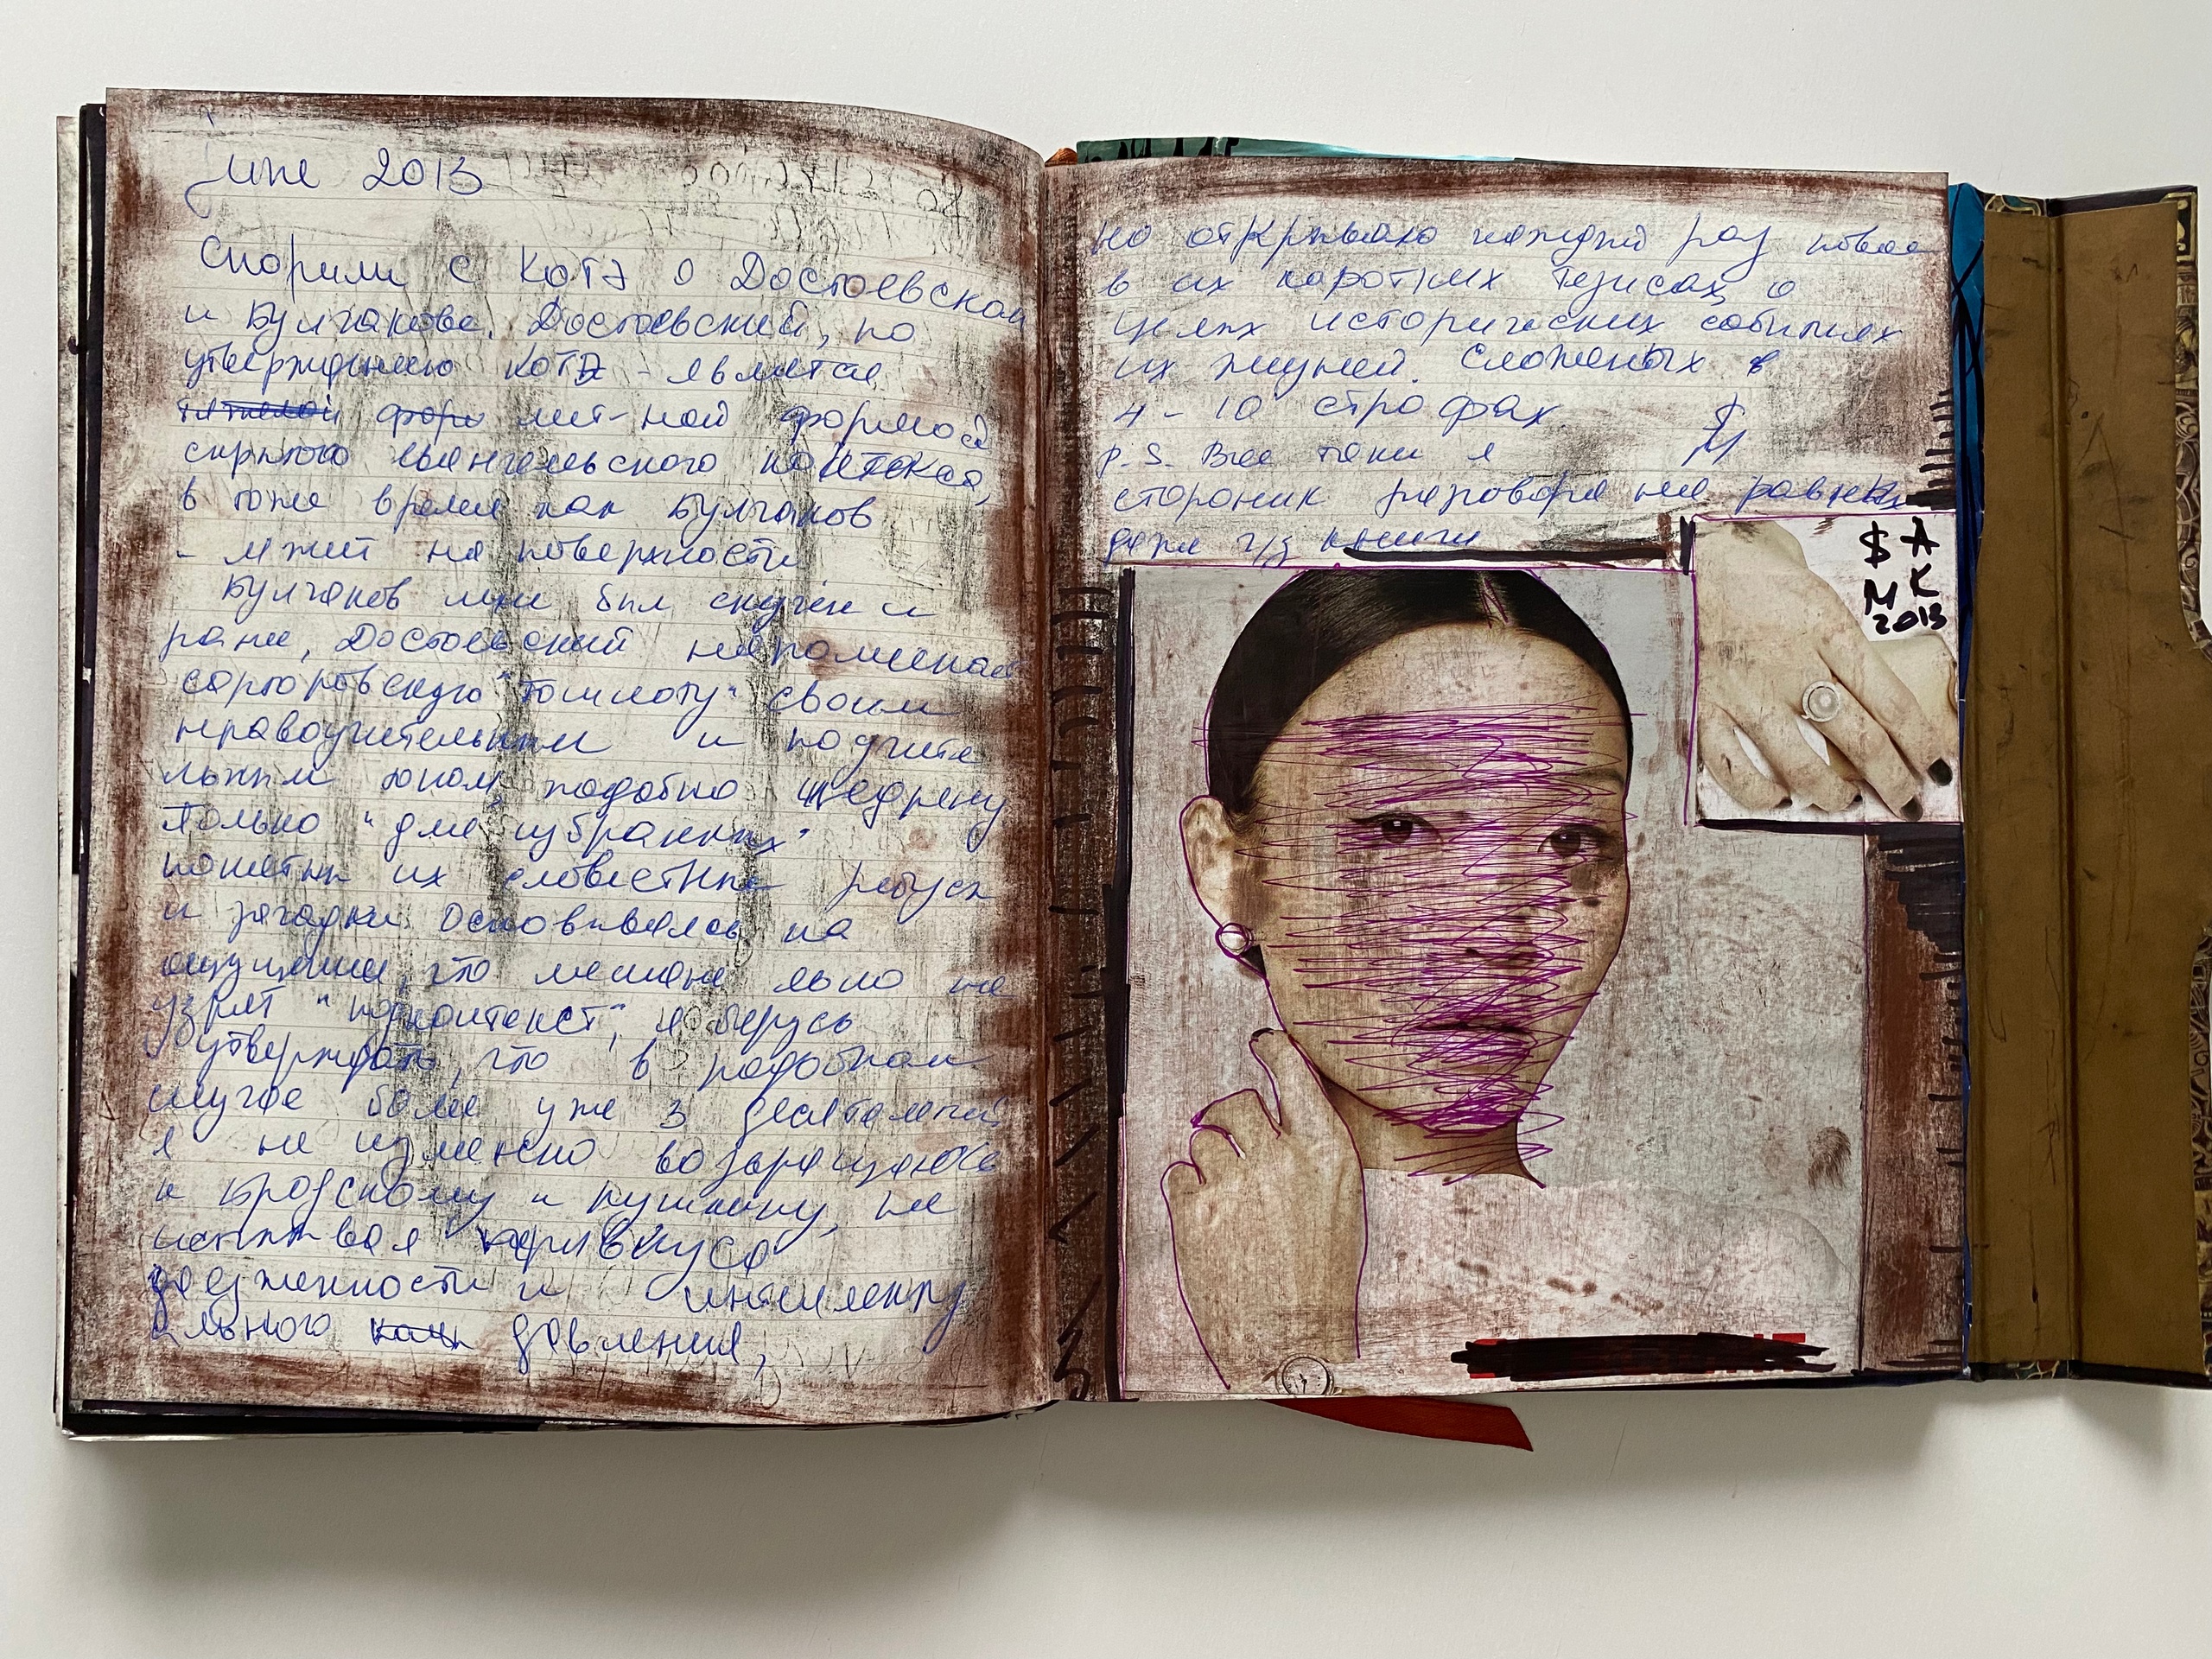 June 2013
Спорили с Котэ о Достоевском
и Булгакове. Достоевский, по
утверждению Котэ - является
фор лит-ной формой
скрытого евангельского контекста,
в тоже время как Булгаков
- лежит на поверхности
Булгаков мне был скучен и
ранее, Достоевский напоминал
сартровскую "Тошноту" своим
нравоучительным и поучите
льным оном, подобно Щедрину
Только "для избранных"
понятны их словестные ребусы
и загадки. Основываясь на
ощущении, что мешане явно не
узрят "подконтекст", я берусь
утверждать, что в подобном
случае более уже 3 десятилетий
я неизменно возвращаюсь
к Бродскому и Пушкину, не
испытывая привкуса
и интеллекту
ального давления,
но открываю каждый раз новое
в их коротких тезисах о
целых исторических событиях
их жизней. Сложенных в
4 - 10 строфах.
$
M
P.S. Все таки я
сторонник разговора на равных
даже ч/з книги
$ A
M K
2013